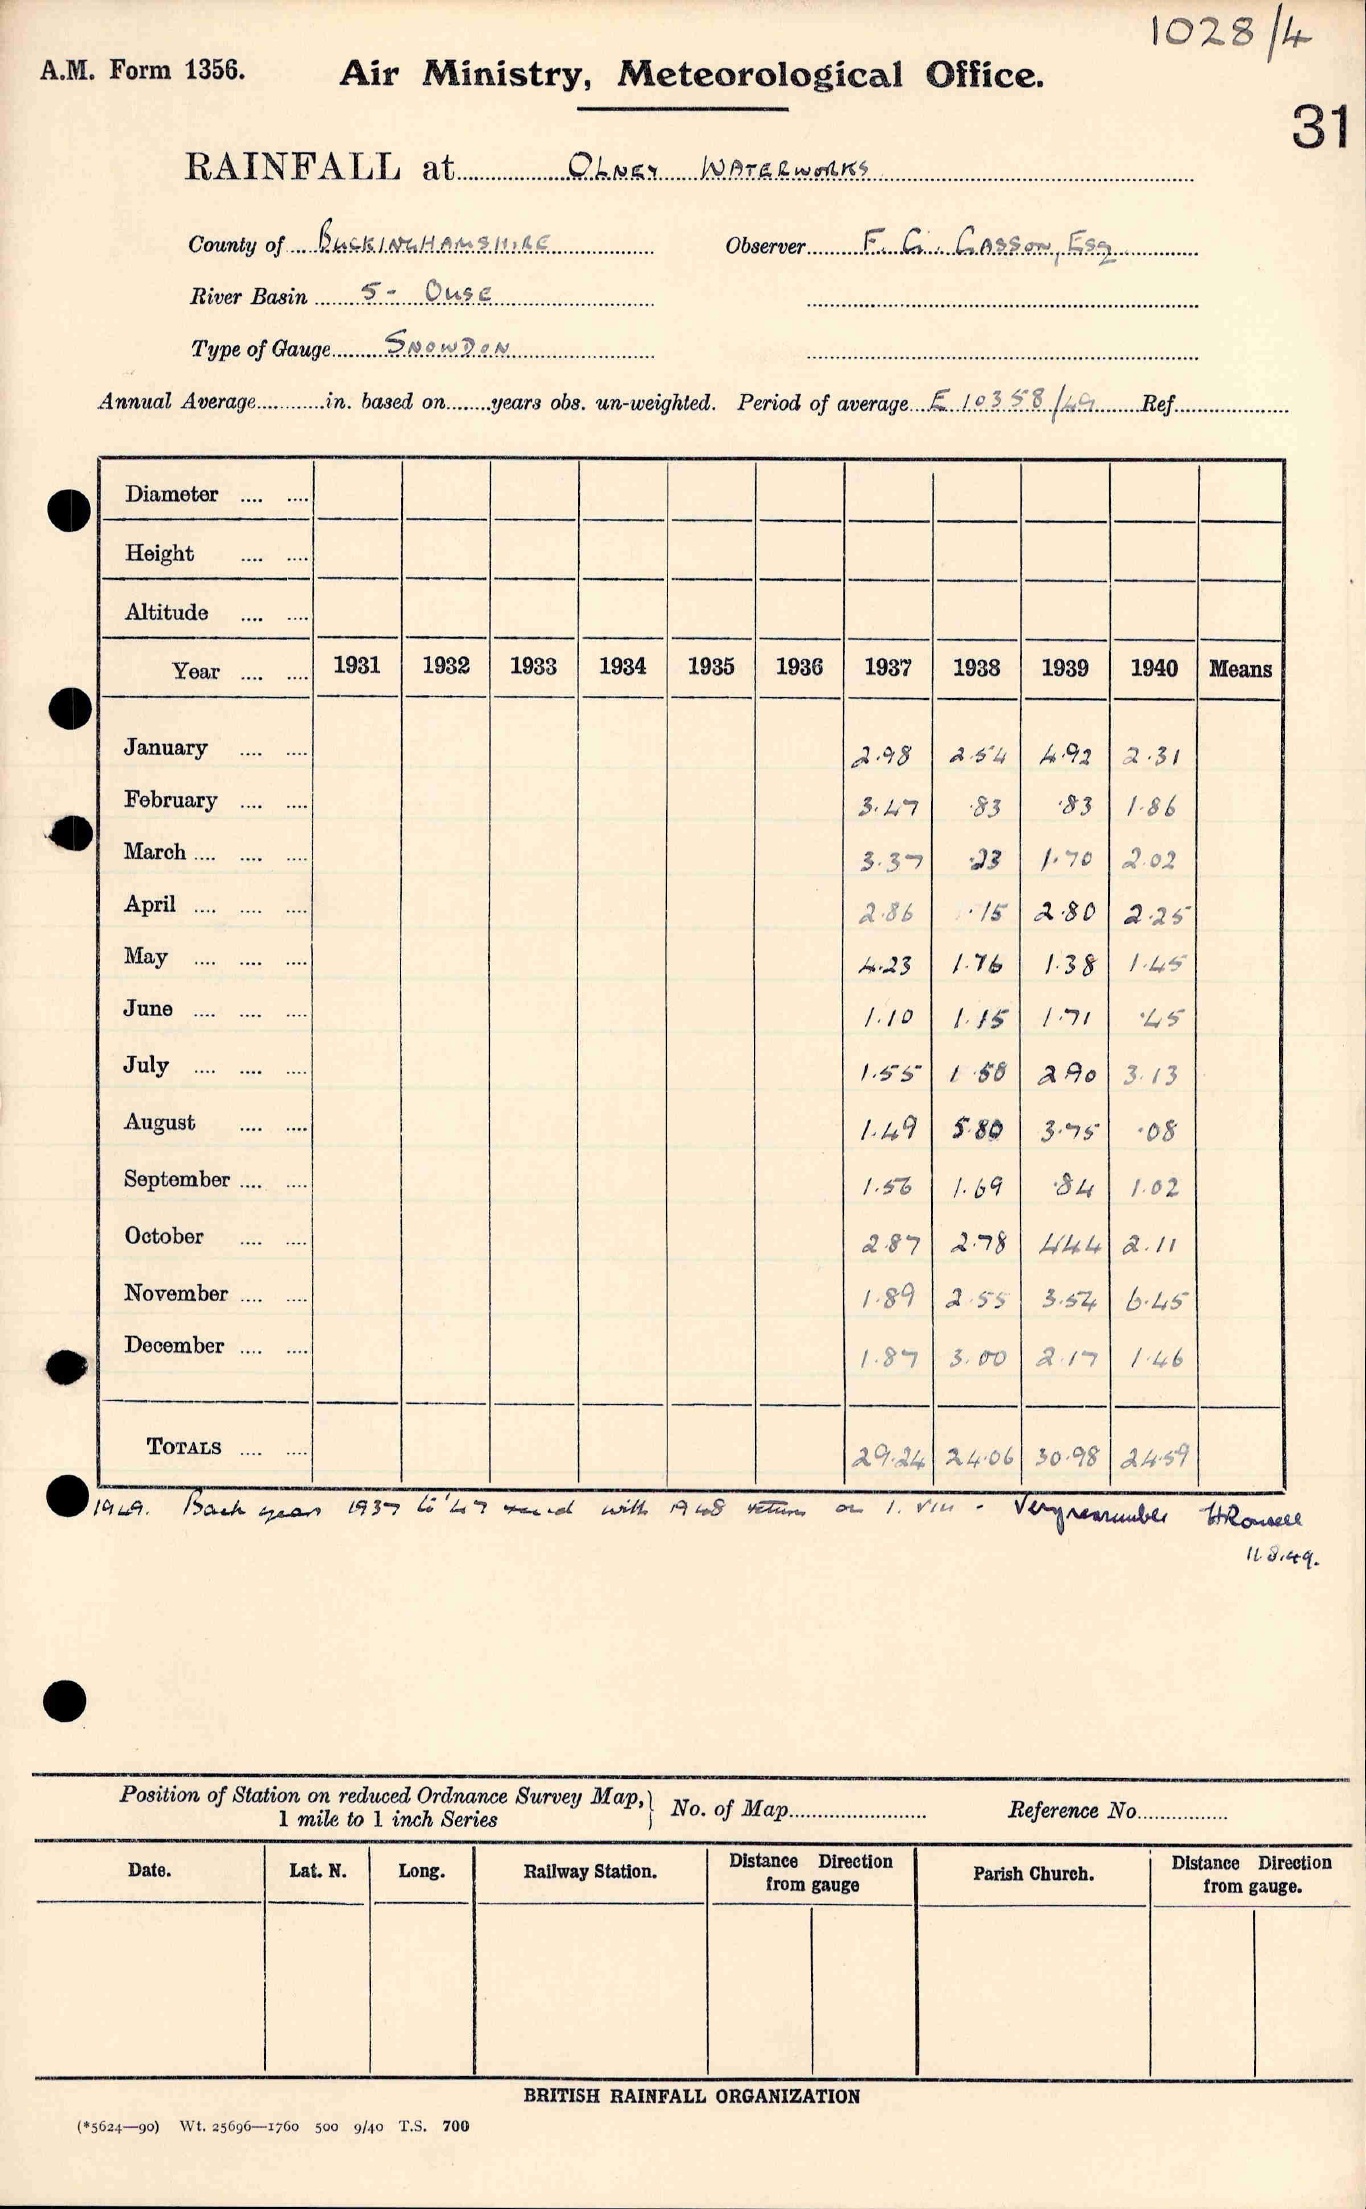 1028/4
A.M. Form 1356. Air Ministry, Meteorological Office.
31
RAINFALL at Olney Waterworks
County of Buckinghamshire Observer F. G. Gasson, Esq.
River Basin 5 - Ouse
Type of Gauge Snowdon
Annual Average in. based on years obs. un-weighted. Period of average E 10358/49 Ref
Diameter
Height
Altitude
Year 1931 1932 1933 1934 1935 1936 1937 1938 1939 1940 Means
January 2.98 2.54 4.92 2.31
February 3.47 .83 .83 1.86
March 3.37 .23 1.70 2.02
April 2.86 .15 2.80 2.25
May 4.23 1.76 1.38 1.45
June 1.10 1.15 1.71 .45
July 1.55 1.58 2.90 3.13
August 1.49 5.80 3.75 .08
September 1.56 1.69 .84 1.02
October 2.87 2.78 4.44 2.11
November 1.89 2.55 3.54 6.45
December 1.87 3.00 2.17 1.46
Totals 29.24 24.06 30.98 24.59
1949. Back years 1937 to '47 with 1948 return on 1. viii - Very
11.8.49.
Position of Station on reduced Ordnance Survey Map, 1 mile to 1 inch Series No. of Map Reference No.
Date. Lat. N. Long. Railway Station. Distance Direction from gauge Parish Church. Distance Direction from gauge.
BRITISH RAINFALL ORGANIZATION
(*5624—90) Wt. 25696—1760 500 9/40 T.S. 700